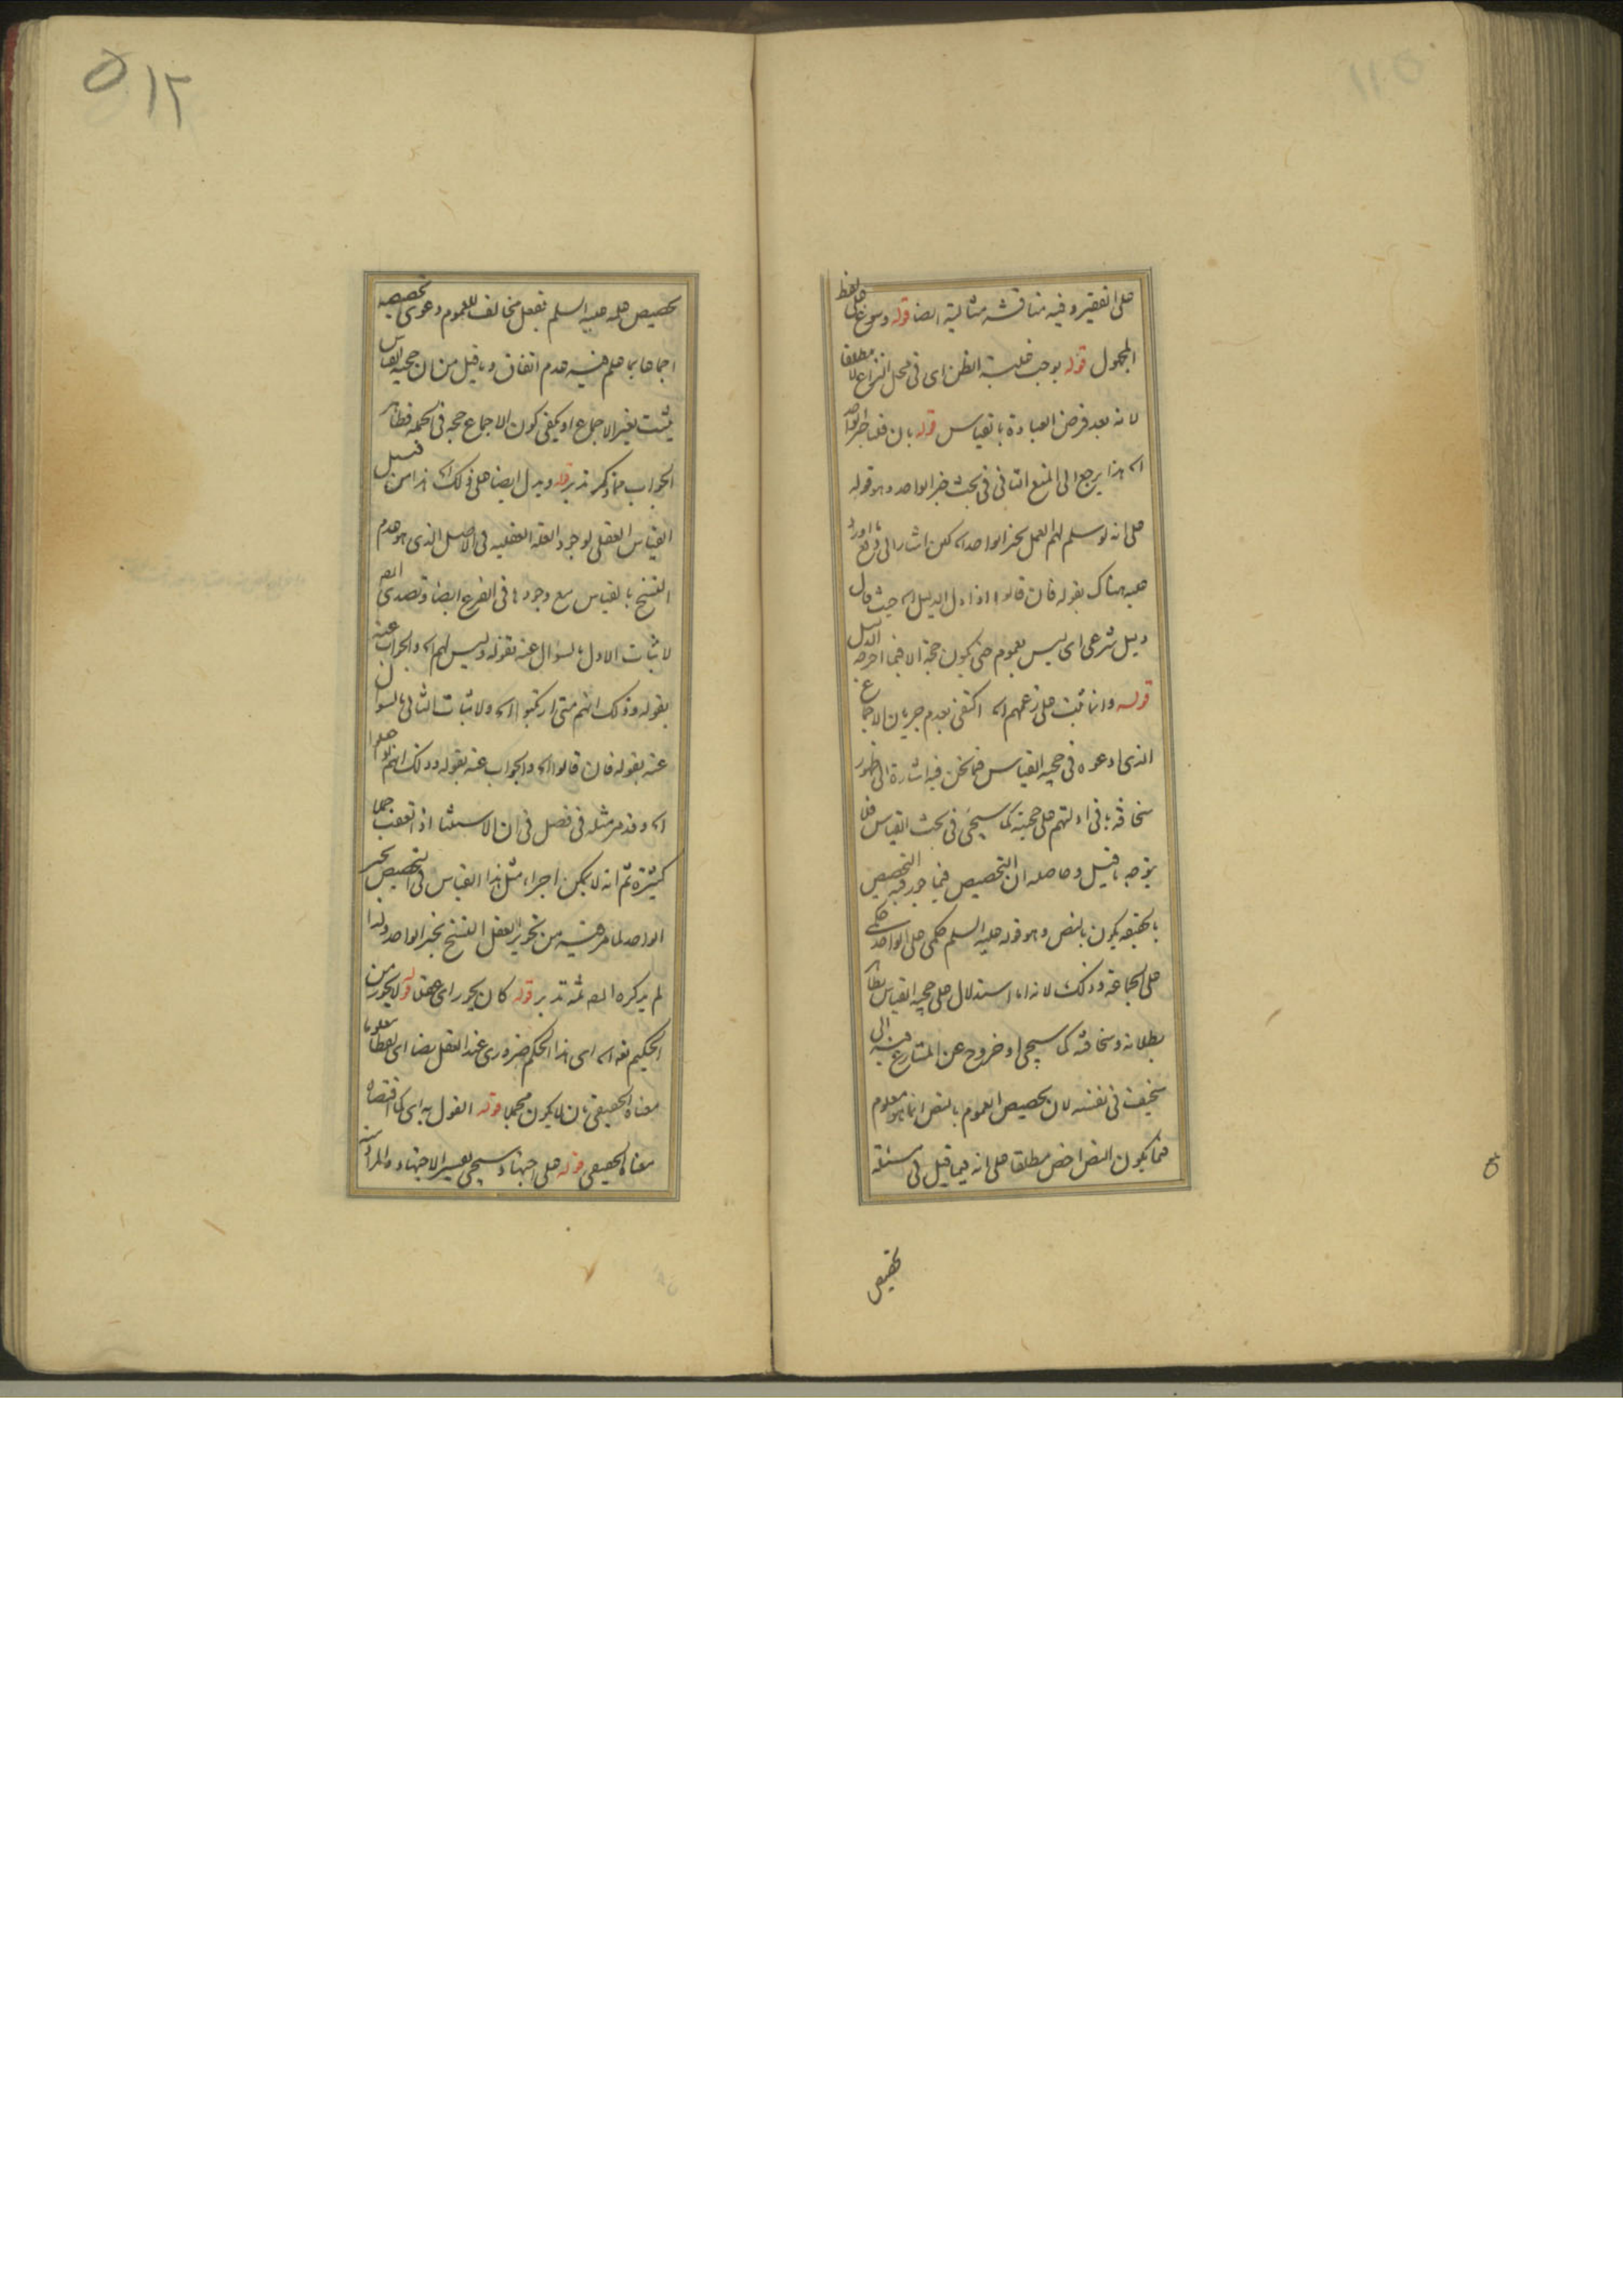 على الفقير وفيه مناقشة مثالية ايضا قوله وسوغ على لفظ
المجهول قوله يوجب غلبة الظن اى فى محل النزاع لا مطلقا
لانه بعد فرض العبادة بالقياس قوله بان قلنا خبر الواحد
اه هذا يرجع الى المنع الثانى فى بحث خبر الواحد وهو قوله
على انه لو سلم لهم العمل بخبر الواحد اه لكن اشار الى دفع ما اورد
عليه هناك بقوله فان قالوا اذا دل الدليل اه حيث قال
دليل شرعى اى ليس بعموم حتى يكون حجة الا فيما اخرجه الدليل
قوله وانما ثبت على زعمهم اه اكتفى بعدم جريان الاجماع
الذى ادعوه فى حجية القياس فيما نحن فيه اشارة الى ظهور
سخافة باقى ادلتهم على حجيته كما سيجئ فى بحث القياس فلا
يتوجه ما قيل وحاصله ان التخصيص فيما وجد فيه التخصيص
بالحقيقة يكون بالنص وهو قوله عليه السلم حكمى على الواحد حكمى
على الجماعة وذلك لانه اما استدلال على حجية القياس بظاهر
بطلانه وسخافته كما سيجى او خروج عن المتنازع فيه الى
سخيف فى نفسه لان تخصيص العموم بالنص انما هو معلوم
فيما يكون النص اخص مطلقا على انه فيما قيل فى مسئلة
تخصيص
٥١٢
تخصيص فعله عليه السلم بفعل مخالف للعموم ودعوى تخصيصه
اجماعا بما علم فيه عدم اتفاق وما قيل من ان حجية القياس
يثبت بغير الاجماع او يكفى كون الاجماع حجة فى الجملة فظاهر
الجواب مما ذكر تدبر قوله ويدل ايضا على ذلك اه هذا من قبيل
القياس العقلى لوجود العلة العقلية فى الاصل الذى هو عدم
النسخ بالقياس مع وجودها فى الفرع ايضا وتصدى المص
لاثبات الاول بالسؤال عنه بقوله وليس لهم اه والجواب عنه
بقوله وذلك انهم متى ارتكبوا اه ولاثبات الثانى بالسؤال
عنه بقوله فان قالوا اه والجواب عنه بقوله وذلك انهم لو جعلوا
اه وقد مر مثله فى فصل فى ان الاستثنا اذا تعقب جملا
كثيرة ثم انه لا يمكن اجراء مثل هذا القياس فى التخصيص بخبر
الواحد لما مر فيه من تجويز العقل النسخ بخبر الواحد ولذا
لم يذكره المص ثمة تدبر قوله كان يجوز اى عقلا قوله لا يجوز من
الحكيم نفسه اه اى هذا الحكم ضرورى عند العقل ايضا اى لفظا معلوما
معناه الحقيقى بان لا يكون مجملا قوله القول به اى كما اقتضاه
معناه الحقيقى قوله على اجتهاد وسيجى تفسير الاجتهاد والمراد منه